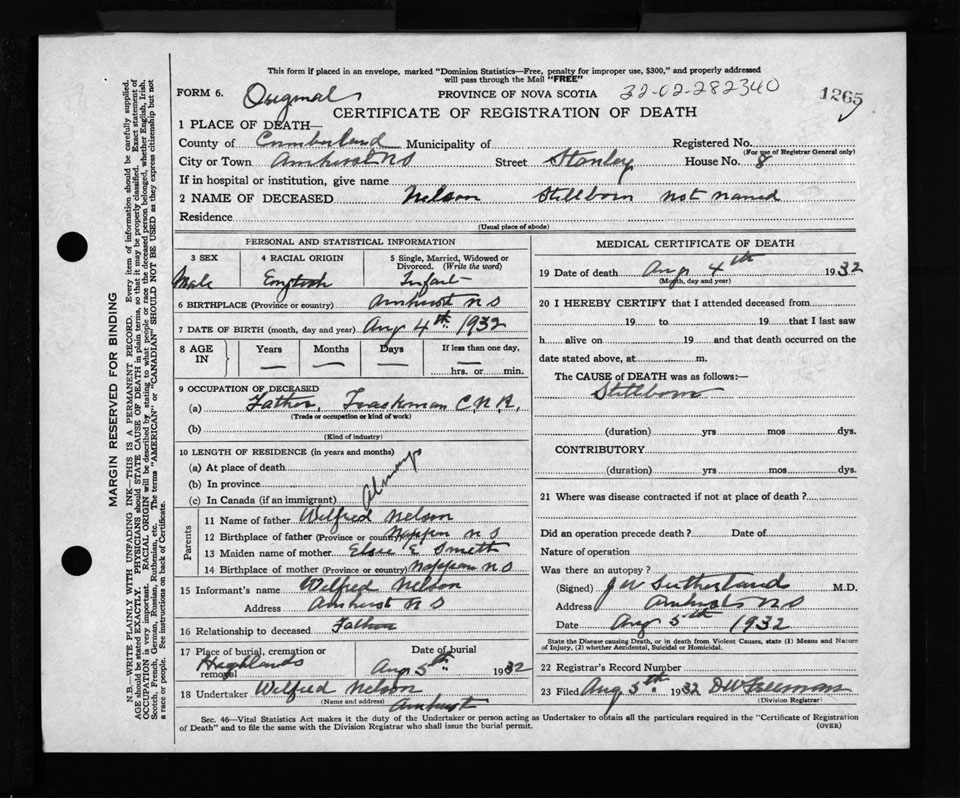 This form if placed in an envelope, marked "Dominion Statistics—Free, penalty for improper use, $300," and properly addressed
will pass through the Mail "FREE"
FORM 6. Original PROVINCE OF NOVA SCOTIA 32-02-282340 1265
CERTIFICATE OF REGISTRATION OF DEATH
1 PLACE OF DEATH—
County of Cumberland Municipality of Registered No.
(For use of Registrar General only)
City or Town Amherst NS Street Stanley House No. 8
If in hospital or institution, give name
2 NAME OF DECEASED Nelson Stillborn not named
Residence
(Usual place of abode)
PERSONAL AND STATISTICAL INFORMATION
3 SEX 4 RACIAL ORIGIN 5 Single, Married, Widowed or Divorced. (Write the word)
Male English Infant
6 BIRTHPLACE (Province or country) Amherst N S
7 DATE OF BIRTH (month, day and year) Aug 4th 1932
8 AGE IN Years Months Days If less than one day,
— — — —
hrs. or min.
9 OCCUPATION OF DECEASED
(a) Father, Trackman C.N.R.
(Trade or occupation or kind of work)
(b)
(Kind of industry)
10 LENGTH OF RESIDENCE (in years and months)
(a) At place of death
(b) In province
(c) In Canada (if an immigrant)
Always
Parents
11 Name of father Wilfred Nelson
12 Birthplace of father (Province or country) Nappan N S
13 Maiden name of mother Elsie E. Smith
14 Birthplace of mother (Province or country) Nappan N S
15 Informant's name Wilfred Nelson
Address Amherst N S
16 Relationship to deceased Father
17 Place of burial, cremation or removal Date of burial
Highlands Aug 5th 1932
18 Undertaker Wilfred Nelson
(Name and address) Amherst
MEDICAL CERTIFICATE OF DEATH
19 Date of death Aug 4th 1932
(Month, day and year)
20 I HEREBY CERTIFY that I attended deceased from
19 to 19 that I last saw
h alive on 19 and that death occurred on the
date stated above, at m.
The CAUSE of DEATH was as follows:—
Stillborn
(duration) yrs mos dys.
CONTRIBUTORY
(duration) yrs mos dys.
21 Where was disease contracted if not at place of death?
Did an operation precede death? Date of
Nature of operation
Was there an autopsy?
(Signed) J W Sutherland M.D.
Address Amherst N S
Date Aug 5th 1932
State the Disease causing Death, or in death from Violent Causes, state (1) Means and Nature
of Injury, (2) whether Accidental, Suicidal or Homicidal.
22 Registrar's Record Number
23 Filed Aug 5th 1932 D W Freeman
(Division Registrar)
Sec. 46—Vital Statistics Act makes it the duty of the Undertaker or person acting as Undertaker to obtain all the particulars required in the "Certificate of Registration
of Death" and to file the same with the Division Registrar who shall issue the burial permit.
(OVER)
MARGIN RESERVED FOR BINDING
N.B.—WRITE PLAINLY WITH UNFADING INK—THIS IS A PERMANENT RECORD. Every item of information should be carefully supplied.
AGE should be stated EXACTLY. PHYSICIANS should STATE CAUSE OF DEATH in plain terms, so that it may be properly classified. Exact statement of
OCCUPATION is very important. RACIAL ORIGIN will be described by stating to what people or race the deceased person belonged, whether English, Irish,
Scotch, French, German, Russian, Ruthenian, etc. The terms "AMERICAN" or "CANADIAN" SHOULD NOT BE USED as they express citizenship but not
a race or people. See instructions on back of Certificate.